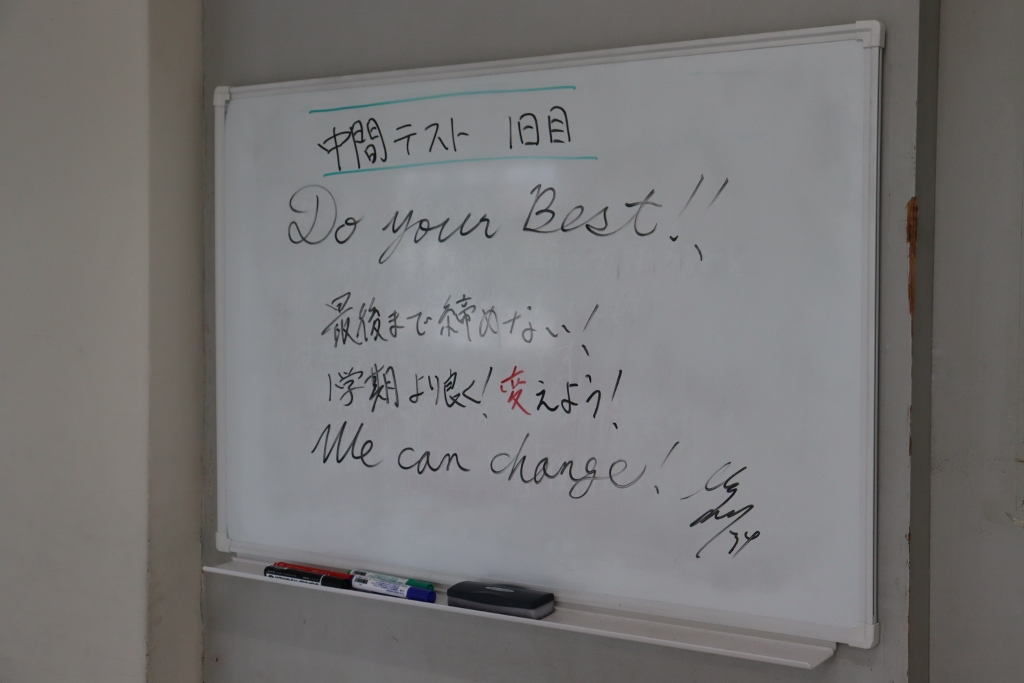 中間テスト 1日目
Do your Best!!
最後まで締めない!
1学期より良く!変えよう!
We can change!